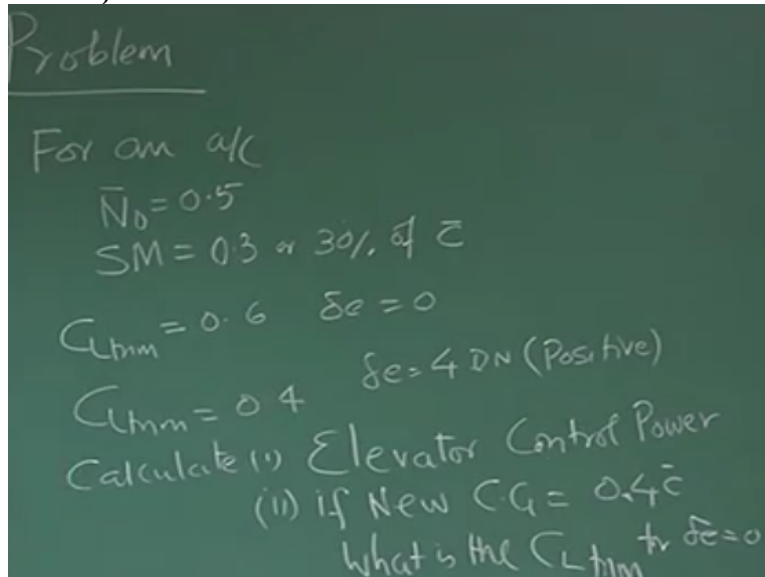 Problem
For an a/c
N̄₀ = 0.5
SM = 0.3 or 30%. of c̄
CLtrim = 0.6 δe = 0
CLtrim = 0 4 δe = 4 DN (Positive)
Calculate (i) Elevator Control Power
(ii) if New C.G = 0.4c̄
What is the CLtrim for δe = 0